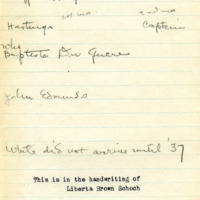 Hastings
Captain
why
Baptiste Du Guere
John Edmunds
White did not arrive until '37
This is in the handwriting of
Liberta Brown Schoch